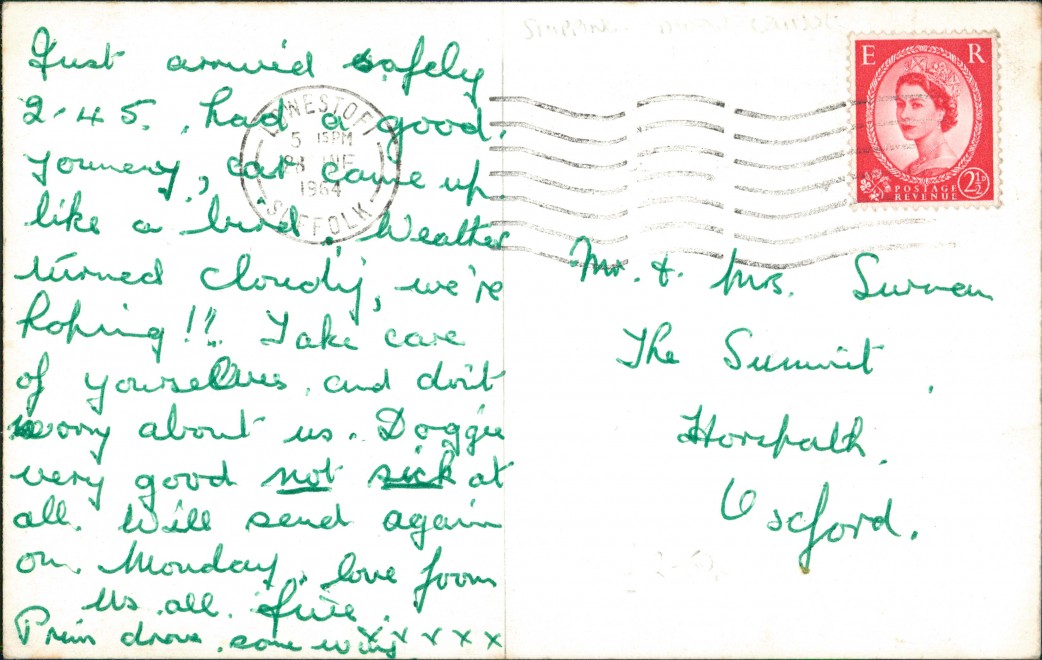 Just arrived safely
2.45., had a good
Journey, car came up
like a bird. Weather
turned cloudy, we're
hoping!!! Take care
of yourselves, and don't
worry about us. Doggie
very good not sick at
all. Will send again
on Monday, love from
us all.
Prim drove some way x x x x x
LOWESTOFT
5 15 PM
1964
SUFFOLK
E R
POSTAGE
REVENUE
2½D
Mr. & Mrs.
The Summit
Horspath.
Oxford.